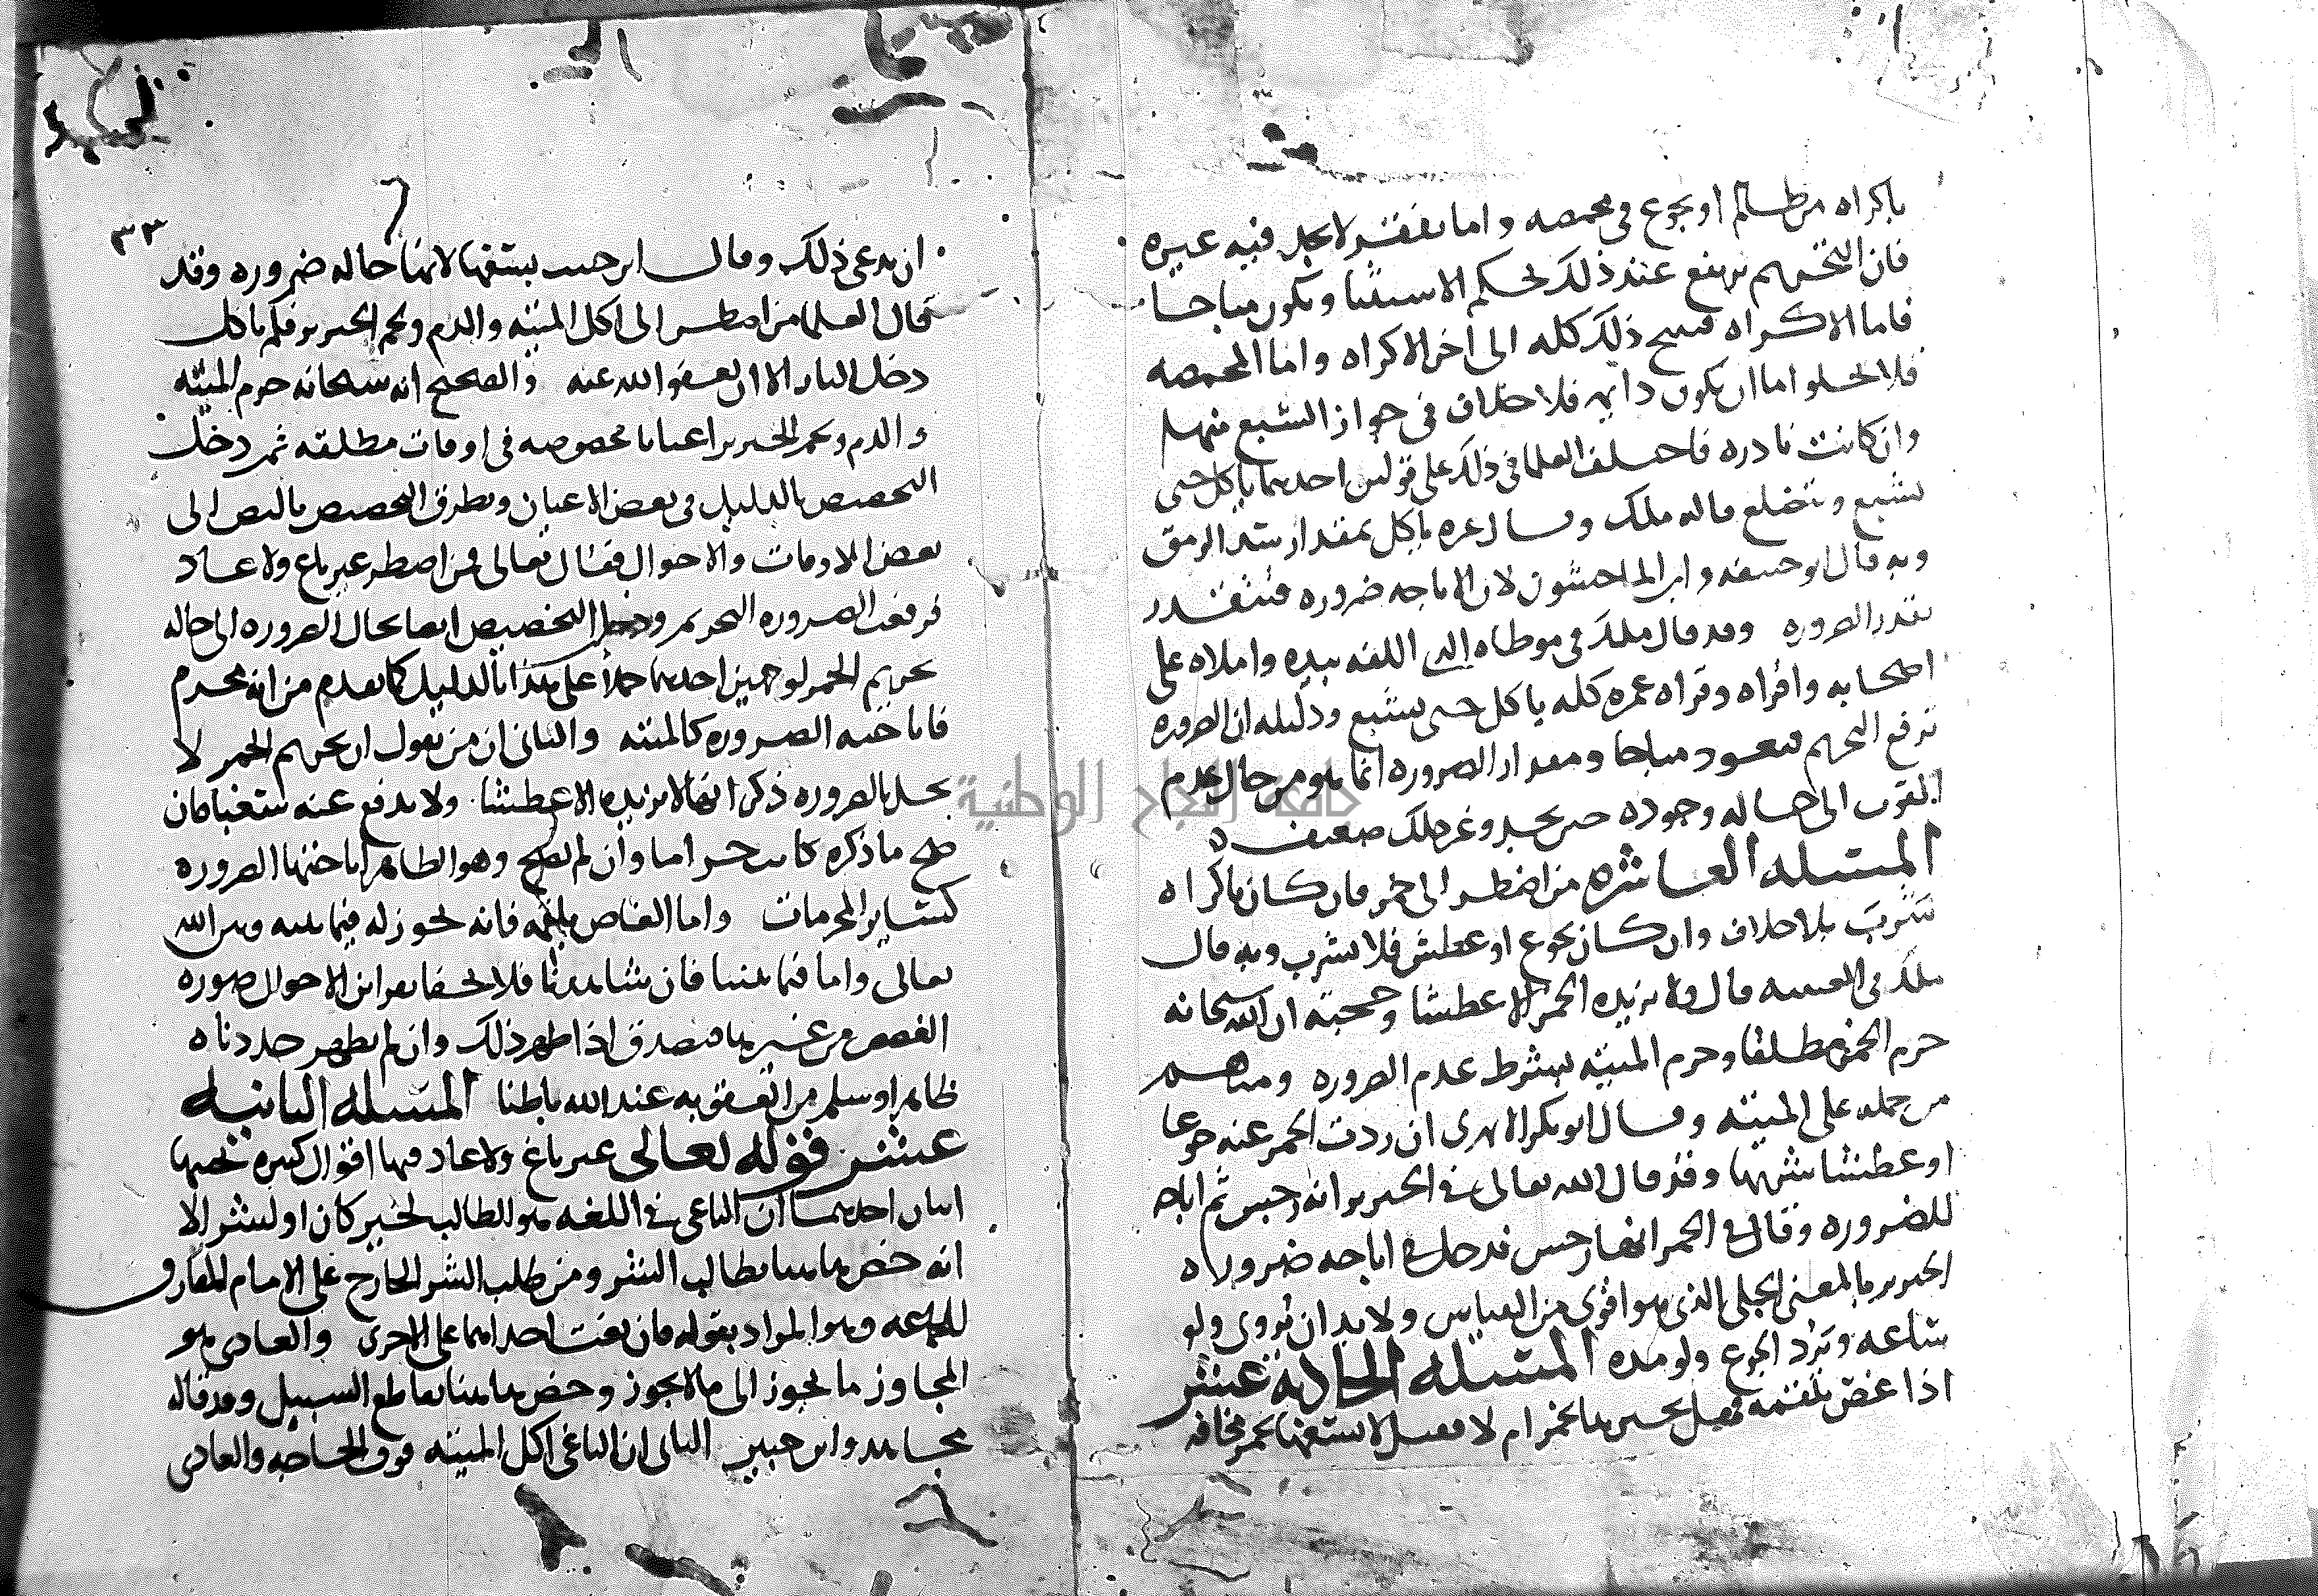 باكراه من ظالم او بجوع في مخمصه واما بفقر لا يجد فيه غيره
فان التحريم يرتفع عند ذلك بحكم الاستثنا ويكون مباحا
فاما الاكراه فيبيح ذلك كله الى اخر الاكراه واما المخمصه
فلا يخلو اما ان يكون دايمه فلا خلاف في جواز الشبع منها
وان كانت نادره فاختلف العلما في ذلك على قولين احدهما ياكل حتى
يشبع ويتضلع قاله ملك وقال غيره ياكل بمقدار سد الرمق
وبه قال ابو حنيفه وابن الماجشون لان الاباحه ضروره فتتقدر
بقدر الضروره وقد قال ملك في موطاه الذي الفه بيده واملاه على
اصحابه واقراه وقراه عمره كله ياكل حتى يشبع ودليله ان الضروره
ترفع التحريم فيعود مباحا ومقدار الضروره انما هو من حال عدم
القوت الى حاله وجوده حتى يجد وغير ذلك ضعيف
المسله العاشره من اضطر الى خمر فان كان باكراه
شرب بلا خلاف وان كان بجوع او عطش فلا يشرب وبه قال
ملك في العتبيه قال ولا يزيده الخمر الا عطشا وحجته ان الله سبحانه
حرم الخمر مطلقا وحرم الميته بشرط عدم الضروره ومنهم
من حمله على الميته وقال ابو بكر الابهري ان ردت الخمر عنه جوعا
او عطشا شربها وقد قال الله تعالى في الخنزير انه رجس ثم اباحه
للضروره وقال في الخمر انها رجس فدخل في اباحه ضروره
الخنزير بالمعنى الجلي الذي هو اقوى من القياس ولا بد ان تروي ولو
ساعه وترد الجوع ولو مده المسله الحاديه عشر
اذا غص بلقمه فهل يجيزها بخمر ام لا فقيل لا يسيغها بخمر مخافه
٣٣
ان يدعي ذلك وقال ابن حبيب يسيغها لانها حاله ضروره وقد
قال العلما من اضطر الى اكل الميته والدم ولحم الخنزير فلم ياكل
دخل النار الا ان يعفو الله عنه والصحيح انه سبحانه حرم الميته
والدم ولحم الخنزير اعيانا مخصوصه في اوقات مطلقه ثم دخل
التخصيص بالدليل في بعض الاعيان وتطرق التخصيص بالنص الى
بعض الاوقات والاحوال فقال تعالى فمن اضطر غير باغ ولا عاد
فرفعت الضروره التحريم ودخل التخصيص ايضا بحال الضروره الى حاله
تحريم الخمر لوجهين احدهما حملا على هذا بالدليل كما تقدم من انه محرم
فاباحته الضروره كالميته والثاني ان من يقول ان تحريم الخمر لا
يحل بالضروره ذكر انها لا تزيده الا عطشا ولا يدفع عنه شبعا فان
صح ما ذكره كانت حراما وان لم يصح وهو الظاهر اباحتها الضروره
كساير المحرمات واما الغاص بلقمه فانه يجوز له فيما بينه وبين الله
تعالى واما فيما بيننا فان شاهدناه فلا يخفى بقراين الاحوال صوره
الغصص من غيرها فيصدق اذا ظهر ذلك وان لم يظهر حددناه
ظاهرا وسلم من العقوبه عند الله باطنا المسله الثانيه
عشر قوله تعالى غير باغ ولا عاد فيها اقوال كثيره نخبتها
اثنان احدهما ان الباغي في اللغه هو الطالب لخير كان او لشر الا
انه خص هاهنا بطالب الشر ومن طلب الشر الخارج على الامام المفارق
للجماعه وهو المراد بقوله فان بغت احداهما على الاخرى والعادي هو
المجاوز ما يجوز الى ما لا يجوز وخص هاهنا بقاطع السبيل وقد قاله
مجاهد وابن جبير الثاني ان الباغي اكل الميته فوق الحاجه والعادي
جامعة النجاح الوطنية